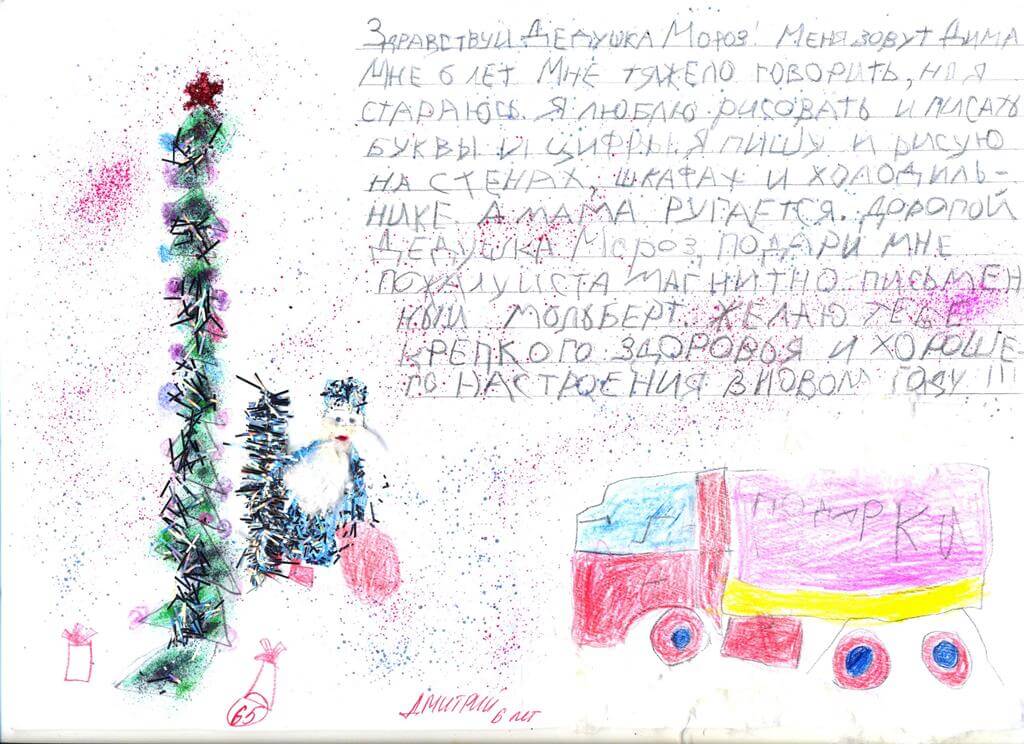 Здравствуй Дедушка Мороз! Меня зовут Дима
Мне 6 лет. Мне тяжело говорить, но я
стараюсь. Я люблю рисовать и писать
буквы и цифры. Я пишу и рисую
на стенах, шкафах и холодиль-
нике. А мама ругается. Дорогой
Дедушка Мороз, подари мне
пожалуйста магнитно письмен
ный мольберт. Желаю тебе
крепкого здоровья и хороше-
го настроения в новом году!!!
Подарки
65
Дмитрий
6 лет